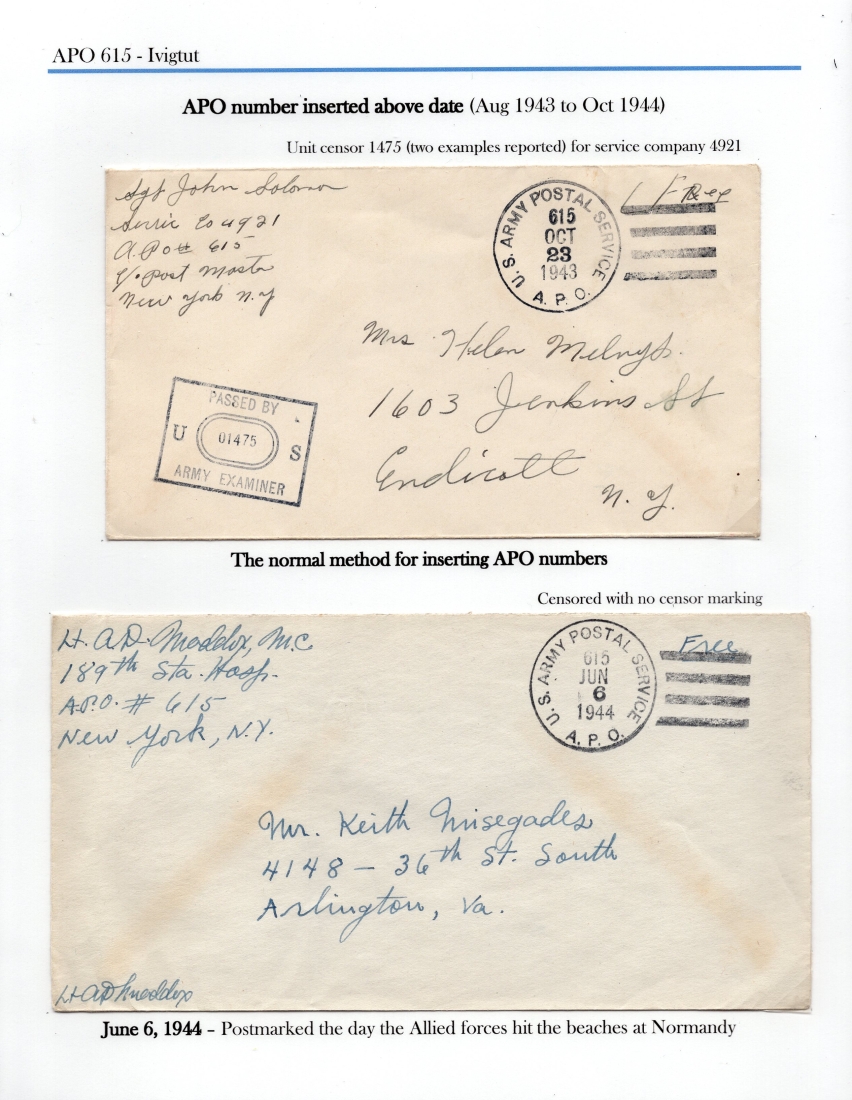 APO 615 - Ivigtut
APO number inserted above date (Aug 1943 to Oct 1944)
Unit censor 1475 (two examples reported) for service company 4921
Sgt John Solomon
Servic Co 4921
A.P.O # 615
c/o Post Master
New York N.Y
U.S. ARMY POSTAL SERVICE
615
OCT
23
1943
A.P.O.
Free
Mrs Helen
1603 Jenkins St
Endicott
N.Y.
PASSED BY
U 01475 S
ARMY EXAMINER
The normal method for inserting APO numbers
Censored with no censor marking
Lt. A.D. Maddox, M.C
189th Sta. Hosp.
A.P.O. # 615
New York, N.Y.
U.S. ARMY POSTAL SERVICE
615
JUN
6
1944
A.P.O.
Free
Mr. Keith Misegades
4148 - 36th St. South
Arlington, Va.
Lt AD Maddox
June 6, 1944 – Postmarked the day the Allied forces hit the beaches at Normandy